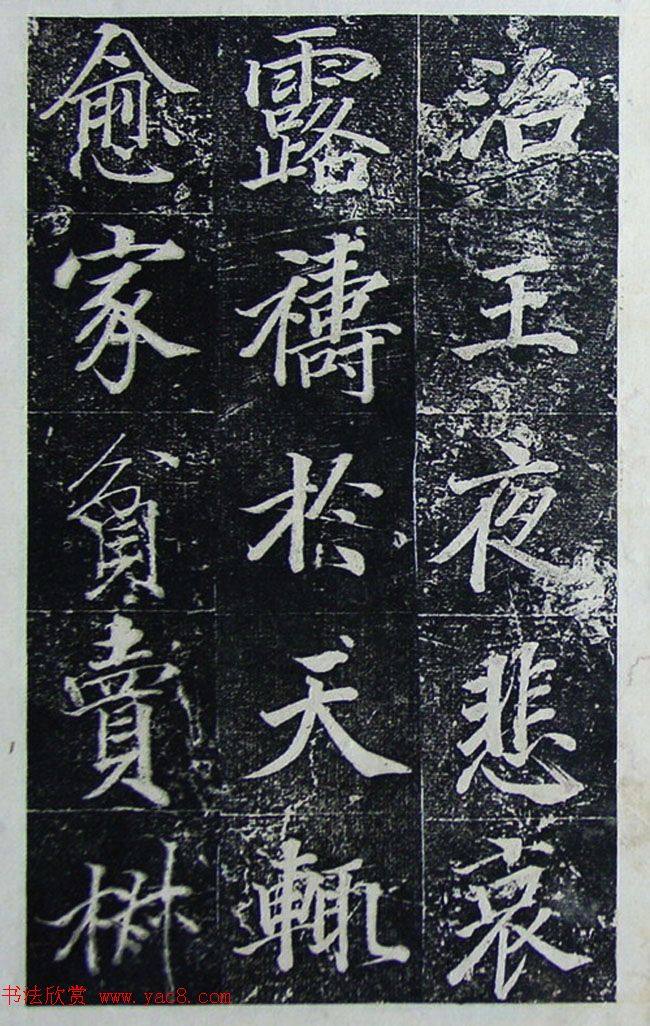 治王夜悲哀
露禱於天輒
愈家貧賣
书法欣赏 www.yac8.com